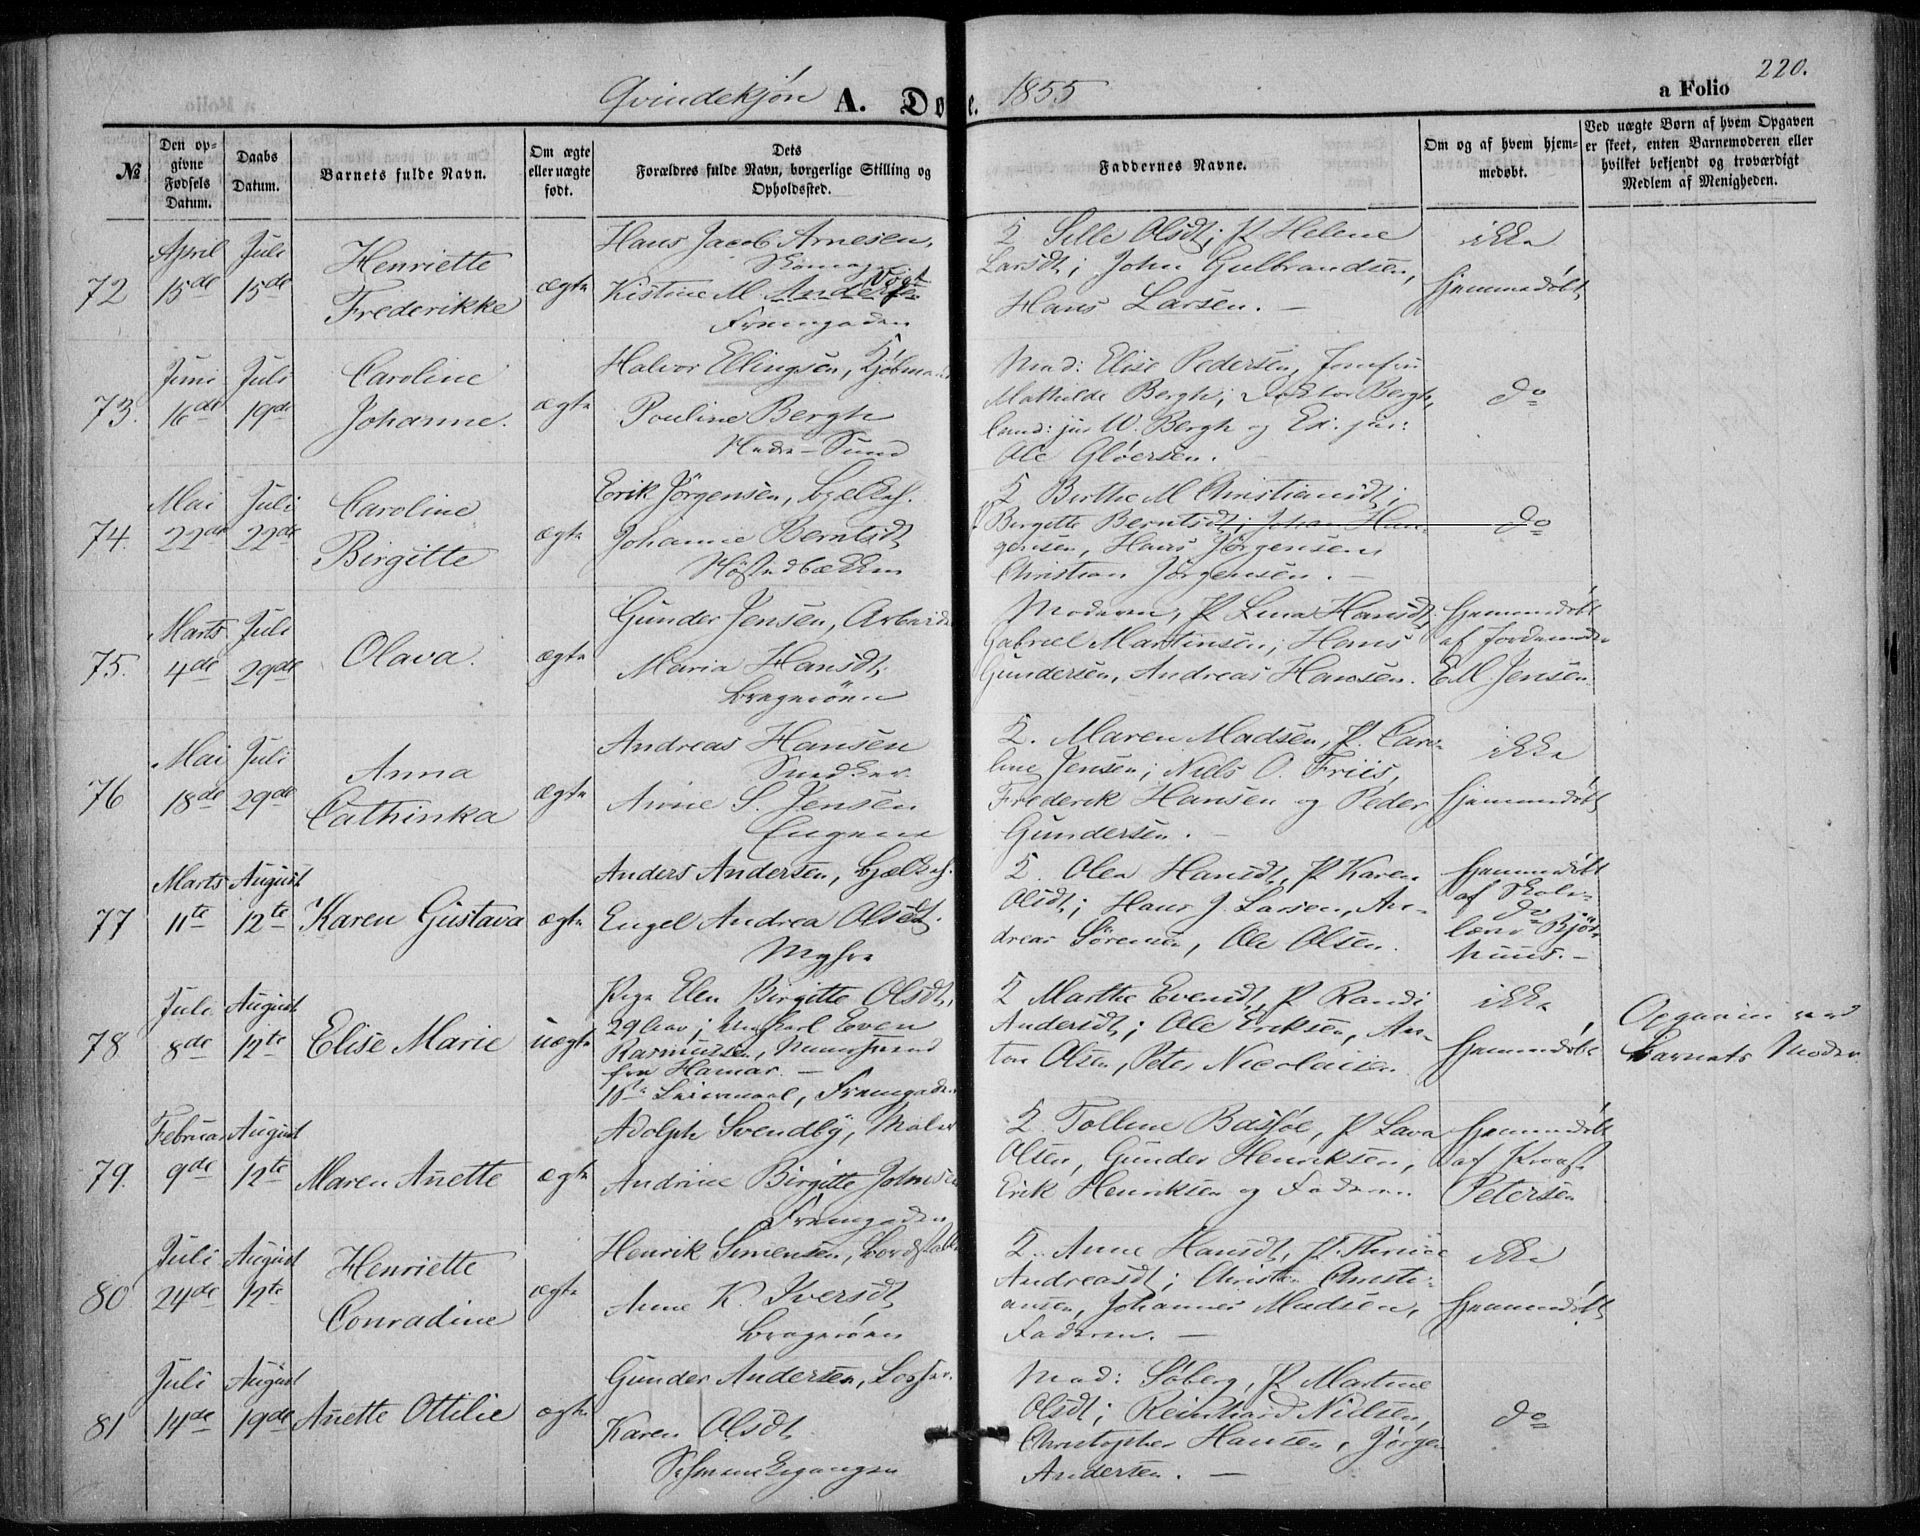 Qvindekjøn A. Dø e. 1855 a Folio 220.
№
Den op-
givne
Fødsels
Datum.
Daabs
Datum.
Barnets fulde Navn.
Om ægte
eller uægte
født.
Dets
Forældres fulde Navn, borgerlige Stilling og
Opholdssted.
Faddernes Navne.
Om og af hvem hjem-
medøbt.
Ved uægte Børn af hvem Opgaven
er skeet, enten Barnemoderen eller
hvilket bekjendt og troværdigt
Medlem af Menigheden.
72
April
15de
Juli
15de
Henriette
Frederikke
ægte
Hans Jacob Arnesen,
Skomag
Kistine M. Vogt
Fremgaden
Q Sille Olsdt; P Helene
Larsdt; John Gulbrandsen,
Hans Larsen. —
ikke
hjemmedøbt
73.
Juni
16de
Juli
19de
Caroline
Johanne.
ægte
Halvor Ellingsen, Kjøbmand
Pouline Bergh
Nedre-Sund
Mad: Elise Pedersen, Jomfru
Mathilde Bergh; Doktor Bergh,
Cand: jur W. Bergh og Ex: jur:
Ole Gløersen. —
do
74.
Mai
22de
Juli
22de
Caroline
Birgitte
ægte
Erik Jørgensen,
Johanne Berntsdt,
Q Birthe M Christiansdt;
P Birgitte Berntsdt; Johan Han-
gensen, Hans Jørgensen
Christian Jørgensen. —
do
75.
Marts
4de
Juli
29de
Olava.
ægte
Gunder Jensen, Arbeider
Maria Hansdt.
Bragerøen
Moderen, P Lina Hansdt,
Gabriel Martinsen, Hans
Gundersen, Andreas Hansen.
hjemmedøbt
af Jordemoder
E.M. Jensen
76
Mai
18de
Juli
29de
Anna
Cathinka
ægte
Andreas Hansen
Snedker.
Anne S. Jensen
Engene
Q. Maren Madsen, P. Caro-
line Jensen; Niels O. Friis,
Frederik Hansen og Peder
Gundersen. —
ikke
hjemmedøbt
77
Marts
11te
August
12te
Karen Gustava
ægte
Anders Andersen,
Engel Andrea Olsdt.
Myhre
Q. Olea Hansdt, P Karen
Olsdt; Hans J. Larsen, An-
dreas Sörensen, Ole Olsen.
hjemmedøbt
af Skole-
lærer Bjør-
huus. —
78
Juli
8de
August
12te
Elise Marie
uægte
Pige Elen Birgitte Olsdt,
29 Aar; Ungkarl Even
Rasmussen,
fra Hamar. —
1ste Leiermaal, Fremgaden
Q Marthe Evensdt, P Randi
Andersdt; Ole Eriksen, An-
ton Olsen, Peter Nicolaisen
ikke
hjemmedøbt
Opgaven ved
Barnets Moder
79.
Februar
9de
August
12te
Maren Anette
ægte
Adolph Svendby, Maler
Andrine Birgitte Johnsen
Fremgaden
Q. Tolline Basføe, P Lava
Olsen, Gunder Henriksen,
Erik Henriksen og Faderen.
hjemmedøbt
af
Petersen
80.
Juli
24de
August
12te
Henriette
Conradine
ægte
Henrik Simensen,
Anne K. Iversdt
Bragerøen
Q. Anne Hansdt, P. Thrine
Andreasdt; Christen Christi-
ansen, Johannes Madsen,
Faderen. —
ikke
hjemmedøbt
81
Juli
14de
August
19de
Anette Ottilie
ægte
Gunder Andersen,
Karen Olsdt.
Mad: Søberg, P Martine
Olsdt; Reinhard Nielsen,
Christopher Hansen, Jørgen
Andersen. —
do